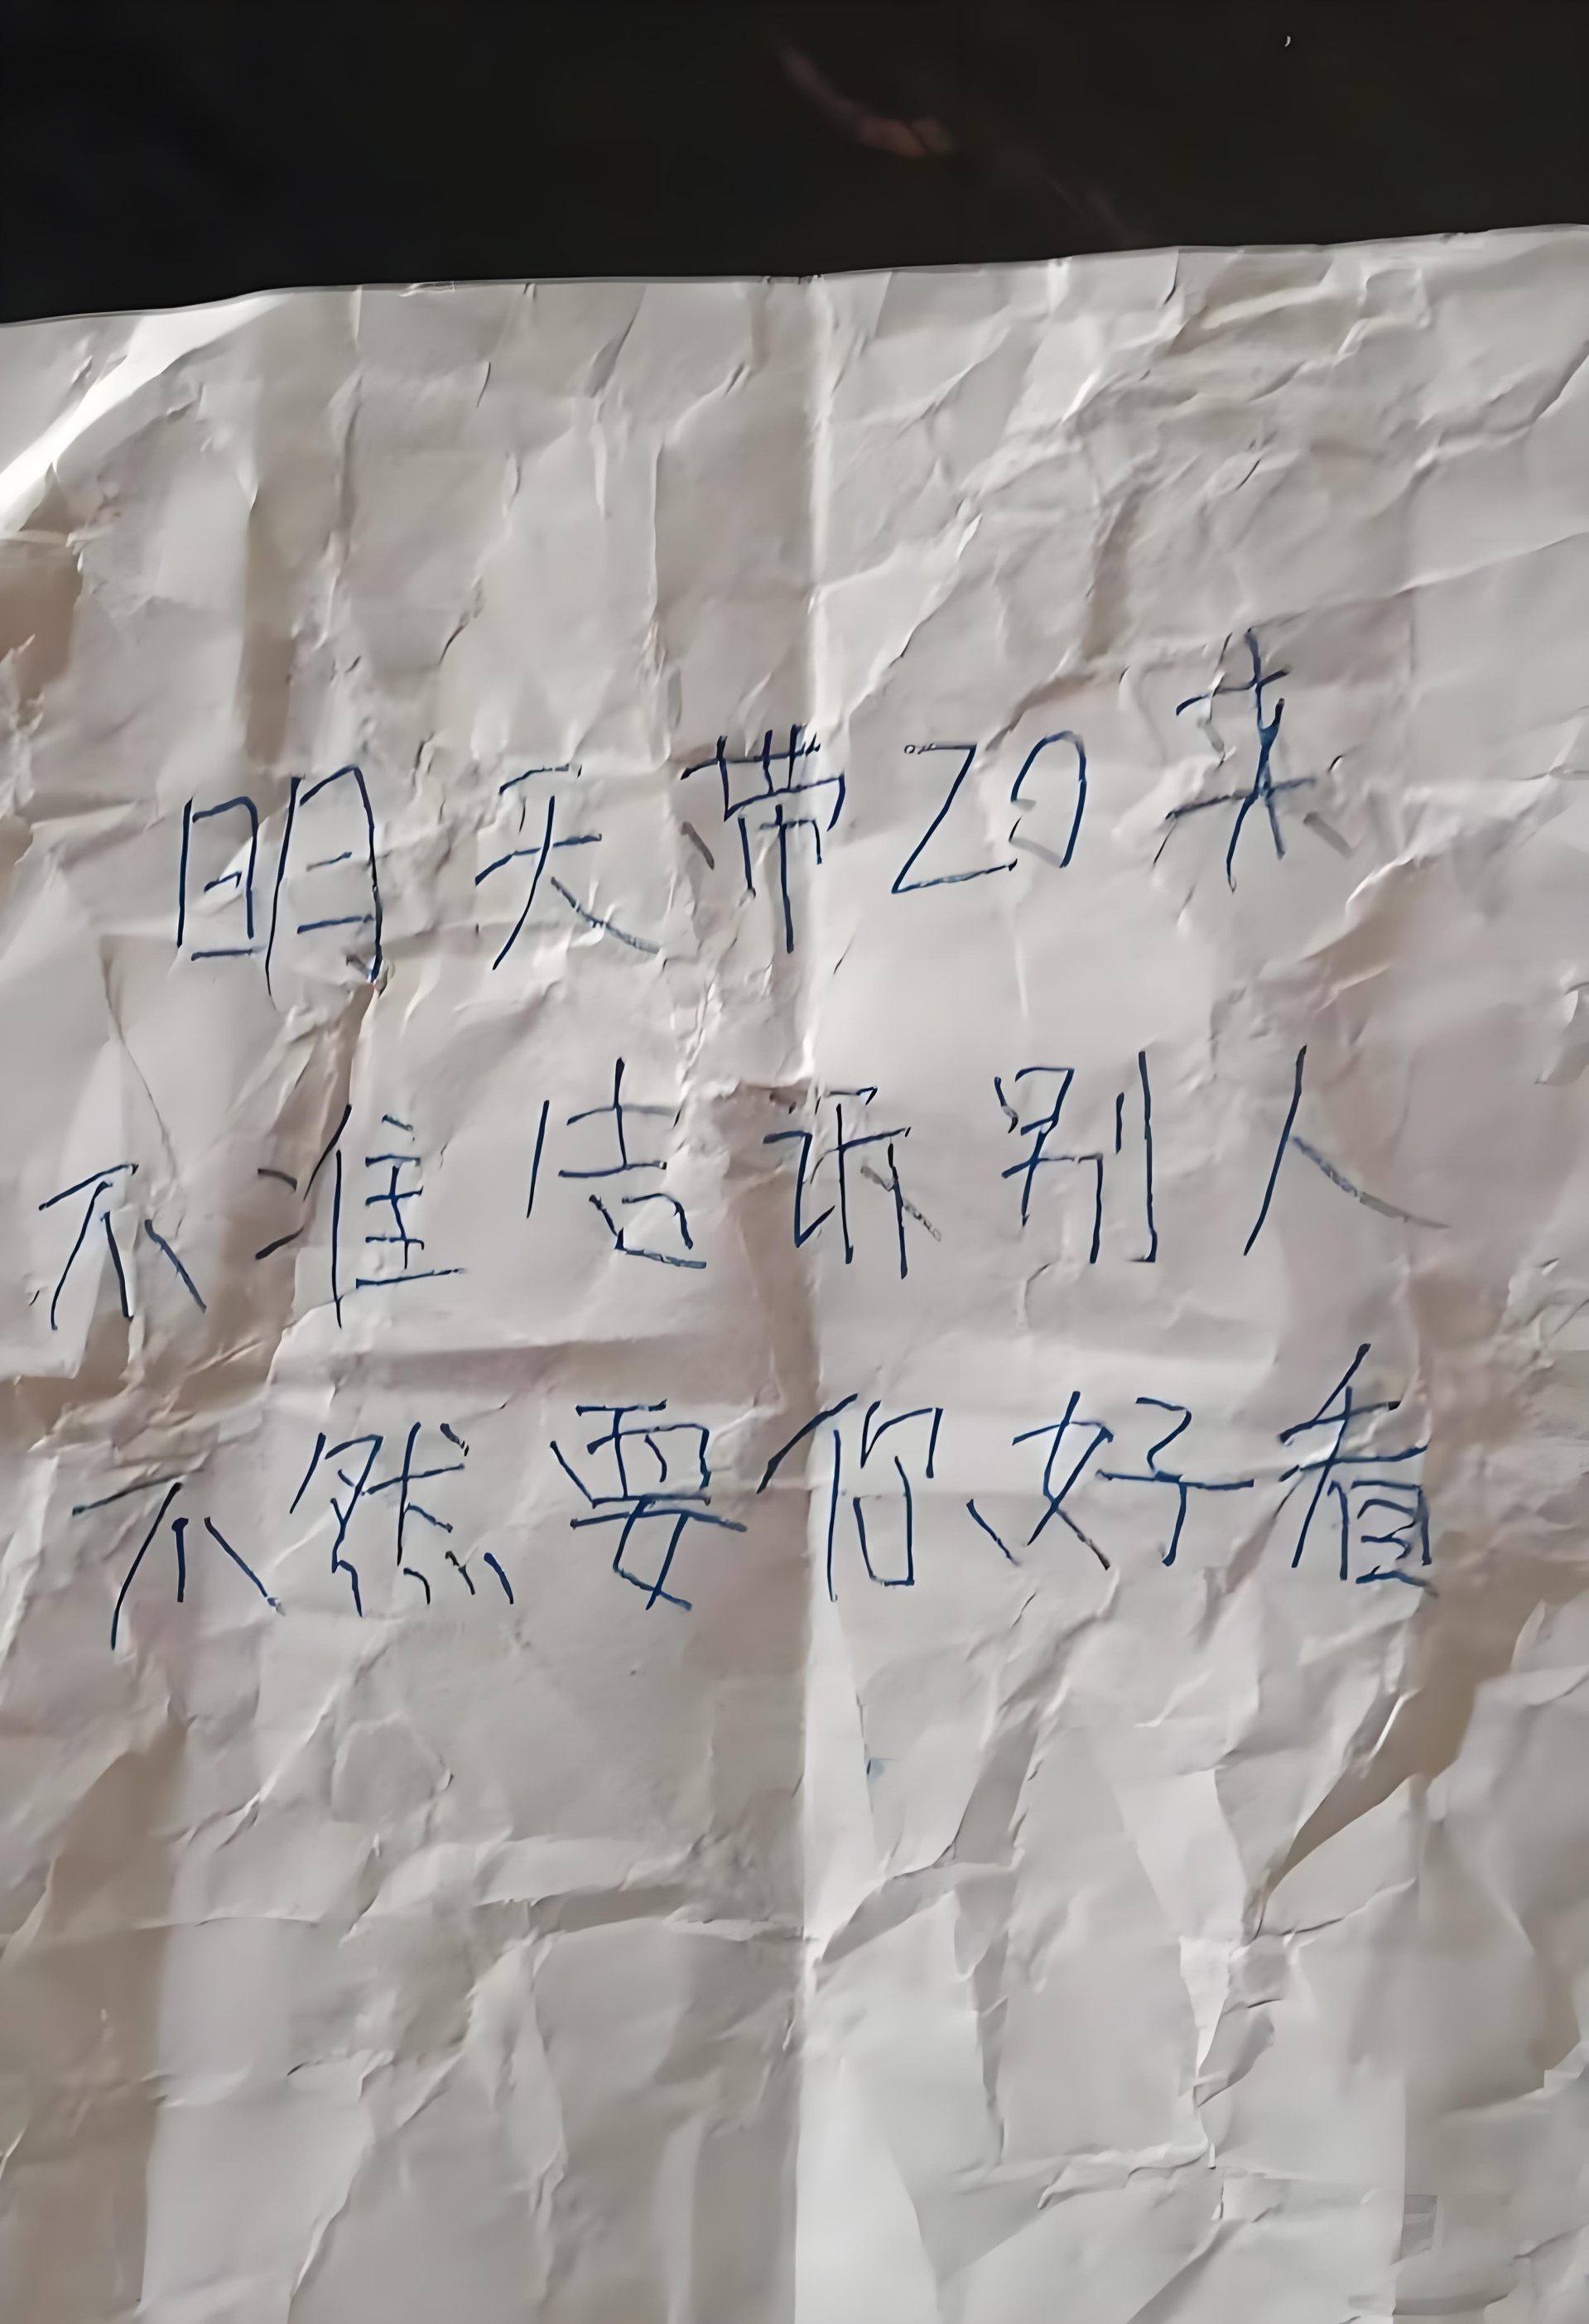 明天带20来
不准告诉别人
不然要你好看